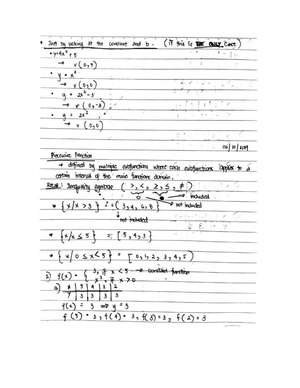 * Just by looking at the constant and b. (if this is THE ONLY case)
• y = x² + 5
→ v (0,5)
• y = x²
→ v (0,0)
• y = 2x² - 3
→ v (0,-3)
• y = 2x²
→ v (0,0)
Piecewise Function
→ defined by multiple subfunctions where each subfunctions applies to a
certain interval of the main functions domain.
Recall: Inequality symbols (>, <, ≥, ≤, ≠)
included
* {x/x > 3} = (3, 4, 5, 6) → not included
not included
* {x/x ≤ 5} = [5, 4, 3}
* {x/0 ≤ x < 5} = [0, 1, 2, 3, 4, 5)
1) f(x) = { 3, if x < 5 → constant function
x², if x > 0
a) x | 5 | 4 | 3 | 2
y | 3 | 3 | 3 | 3
f(x) = 3 ⇒ y = 3
f(5) = 3, f(4) = 3, f(3) = 3, f(2) = 3